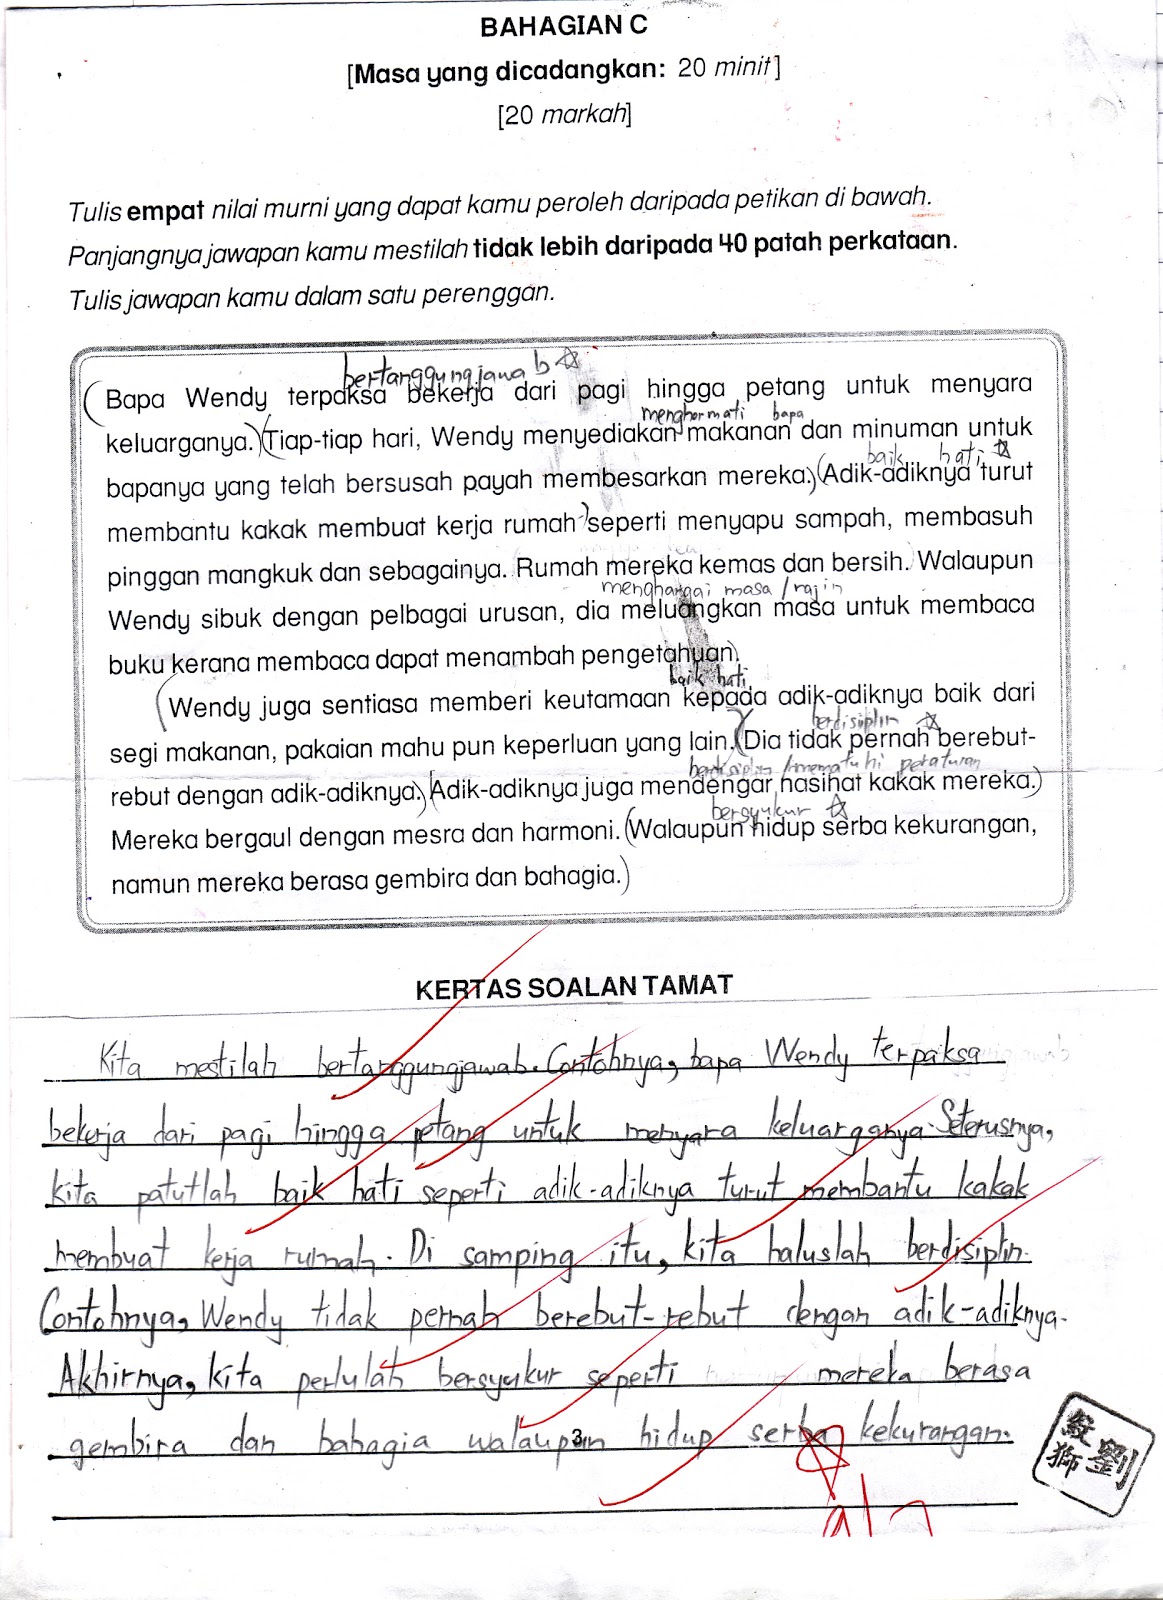 BAHAGIAN C
[Masa yang dicadangkan: 20 minit]
[20 markah]
Tulis empat nilai murni yang dapat kamu peroleh daripada petikan di bawah.
Panjangnya jawapan kamu mestilah tidak lebih daripada 40 patah perkataan.
Tulis jawapan kamu dalam satu perenggan.
bertanggungjawab ☆
(Bapa Wendy terpaksa bekerja dari pagi hingga petang untuk menyara
menghormati bapa
keluarganya.) (Tiap-tiap hari, Wendy menyediakan makanan dan minuman untuk
baik hati ☆
bapanya yang telah bersusah payah membesarkan mereka.) (Adik-adiknya turut
membantu kakak membuat kerja rumah) seperti menyapu sampah, membasuh
pinggan mangkuk dan sebagainya. Rumah mereka kemas dan bersih. Walaupun
menghargai masa / rajin
Wendy sibuk dengan pelbagai urusan, dia meluangkan masa untuk membaca
buku kerana membaca dapat menambah pengetahuan.
baik hati
(Wendy juga sentiasa memberi keutamaan kepada adik-adiknya baik dari
berdisiplin ☆
segi makanan, pakaian mahu pun keperluan yang lain.) (Dia tidak pernah berebut-
berdisiplin / mematuhi peraturan
rebut dengan adik-adiknya.) (Adik-adiknya juga mendengar nasihat kakak mereka.)
bersyukur ☆
Mereka bergaul dengan mesra dan harmoni. (Walaupun hidup serba kekurangan,
namun mereka berasa gembira dan bahagia.)
KERTAS SOALAN TAMAT
Kita mestilah bertanggungjawab. Contohnya, bapa Wendy terpaksa
bekerja dari pagi hingga petang untuk menyara keluarganya. Seterusnya,
kita patutlah baik hati seperti adik-adiknya turut membantu kakak
membuat kerja rumah. Di samping itu, kita haluslah berdisiplin.
Contohnya, Wendy tidak pernah berebut-rebut dengan adik-adiknya.
Akhirnya, kita perlulah bersyukur seperti mereka berasa
gembira dan bahagia walaupun hidup serba kekurangan.
3